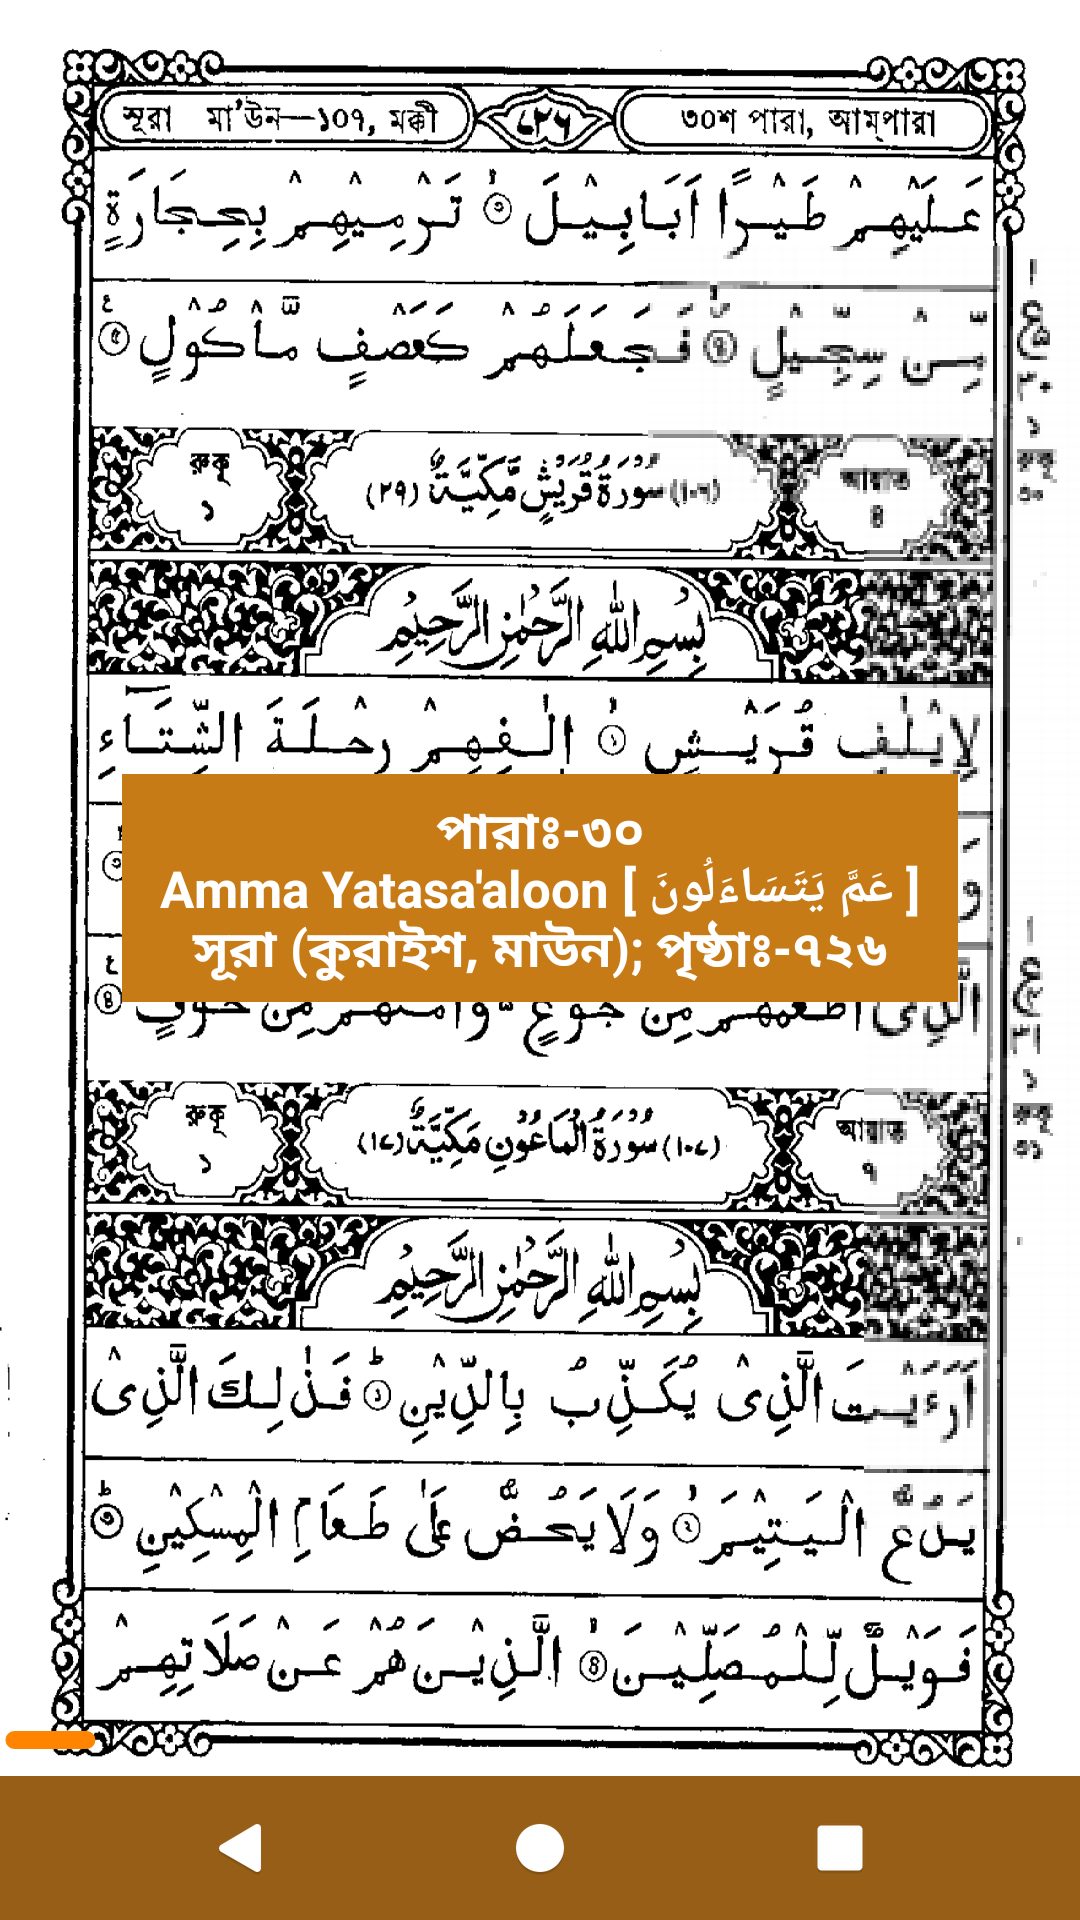 সূরা মা'উন—১০৭, মক্কী
৭২৬
৩০শ পারা, আম্পারা
عَلَيْهِمْ طَيْرًا اَبَابِيْلَ ۙ﴿৩﴾ تَرْمِيْهِمْ بِحِجَارَةٍ
مِّنْ سِجِّيْلٍ ۙ﴿৪﴾ فَجَعَلَهُمْ كَعَصْفٍ مَّاْكُوْلٍ ﴿৫﴾
রুকূ
১
(١٠٦) سُوْرَةُ قُرَيْشٍ مَّكِّيَّةٌ (٢٩)
আয়াত
৪
بِسْمِ اللّٰهِ الرَّحْمٰنِ الرَّحِيْمِ
لِاِيْلٰفِ قُرَيْشٍ ۙ﴿১﴾ اٖلٰفِهِمْ رِحْلَةَ الشِّتَآءِ
পারাঃ-৩০
Amma Yatasa'aloon [ عَمَّ يَتَسَاءَلُونَ ]
সূরা (কুরাইশ, মাউন); পৃষ্ঠাঃ-৭২৬
الَّذِىْ اَطْعَمَهُمْ مِّنْ جُوْعٍ وَّاٰمَنَهُمْ مِّنْ خَوْفٍ ﴿৪﴾
রুকূ
১
(١٠٧) سُوْرَةُ الْمَاعُوْنِ مَكِّيَّةٌ (١٧)
আয়াত
৭
بِسْمِ اللّٰهِ الرَّحْمٰنِ الرَّحِيْمِ
اَرَءَيْتَ الَّذِىْ يُكَذِّبُ بِالدِّيْنِ ؕ﴿১﴾ فَذٰلِكَ الَّذِىْ
يَدُعُّ الْيَتِيْمَ ۙ﴿২﴾ وَلَا يَحُضُّ عَلٰى طَعَامِ الْمِسْكِيْنِ ؕ﴿৩﴾
فَوَيْلٌ لِّلْمُصَلِّيْنَ ۙ﴿৪﴾ الَّذِيْنَ هُمْ عَنْ صَلَاتِهِمْ